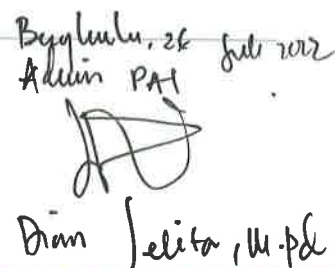 Bengkulu, 26 Juli 2022
Admin PAI
Dian Jelita, M.Pd